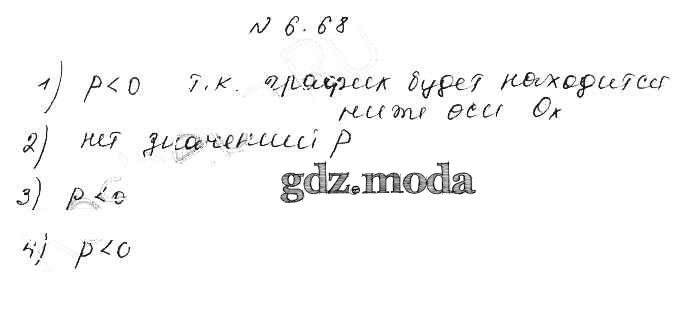 N 6.68
1) p<0 т.к. график будет находится
ниже оси Ox
2) нет значений p
gdz.moda
3) p<0
4) p<0